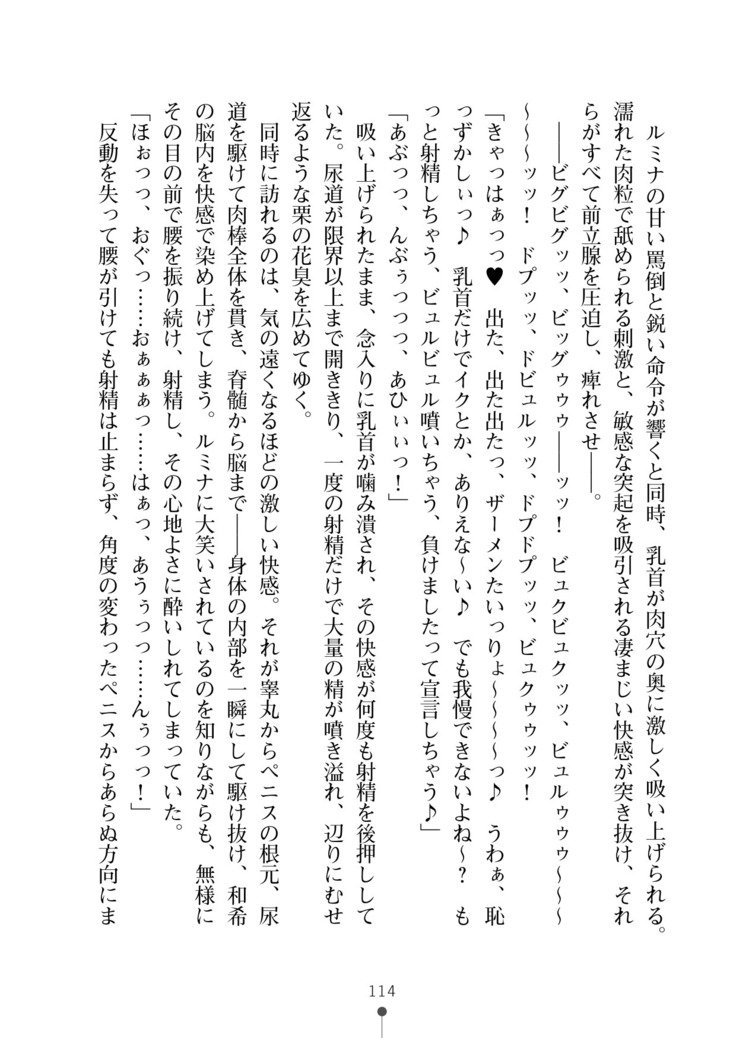 ルミナの甘い罵倒と鋭い命令が響くと同時、乳首が肉穴の奥に激しく吸い上げられる。
濡れた肉粒で舐められる刺激と、敏感な突起を吸引される凄まじい快感が突き抜け、それ
らがすべて前立腺を圧迫し、痺れさせ――。
　――ビグビグッッ、ビッグゥゥゥ――ッッ！　ビュクビュクッッ、ビュルゥゥゥ～～～
～～～ッッ！　ドプッッ、ドビュルッッ、ドプドプッッ、ビュクゥゥッッ！
「きゃっはぁっっ♥　出た、出た出たっ、ザーメンたいっりょ～～～～っ♪　うわぁ、恥
っずかしぃっ♪　乳首だけでイクとか、ありえな～い♪　でも我慢できないよね～？　も
っと射精しちゃう、ビュルビュル噴いちゃう、負けましたって宣言しちゃう♪」
「あぶっっ、んぶぅっっっ、あひぃぃっ！」
　吸い上げられたまま、念入りに乳首が噛み潰され、その快感が何度も射精を後押しして
いた。尿道が限界以上まで開ききり、一度の射精だけで大量の精が噴き溢れ、辺りにむせ
返るような栗の花臭を広めてゆく。
　同時に訪れるのは、気の遠くなるほどの激しい快感。それが睾丸からペニスの根元、尿
道を駆けて肉棒全体を貫き、脊髄から脳まで――身体の内部を一瞬にして駆け抜け、和希
の脳内を快感で染め上げてしまう。ルミナに大笑いされているのを知りながらも、無様に
その目の前で腰を振り続け、射精し、その心地よさに酔いしれてしまっていた。
「ほぉっっ、おぐっ……おぁぁぁっ……はぁっ、あうぅっっ……んぅっっ！」
　反動を失って腰が引けても射精は止まらず、角度の変わったペニスからあらぬ方向にま
114